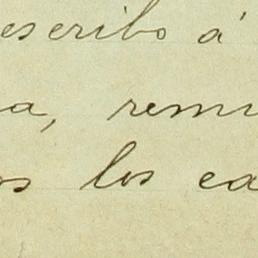 escribo á
a, remi
os los ca